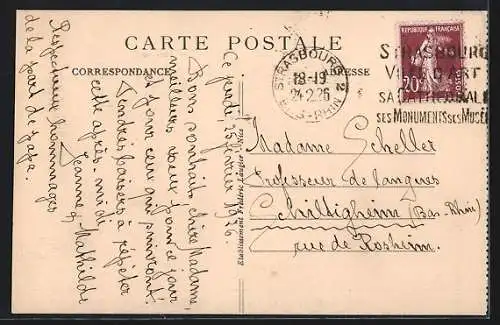 CARTE POSTALE
CORRESPONDANCE
ADRESSE
RÉPUBLIQUE FRANÇAISE
POSTES
20c
STRASBOURG 2
18-19
24.2.26
BAS-RHIN
STRASBOURG
VILLE D'ART
SA CATHÉDRALE
SES MONUMENTS SES MUSÉES
Ce jeudi, 25 février 1926.
Bons souhaits chère Madame,
meilleurs vœux pour ce jour
et pour ceux qui suivront!
Tendres baisers à répéter
cette après-midi
Jeanne & Mathilde
Respectueux hommages
de la part de papa.
Etablissement Frédéric Laugier - Nice
Madame Scheller
Professeur de langues
Schiltigheim (Bas-Rhin)
rue de Rosheim.